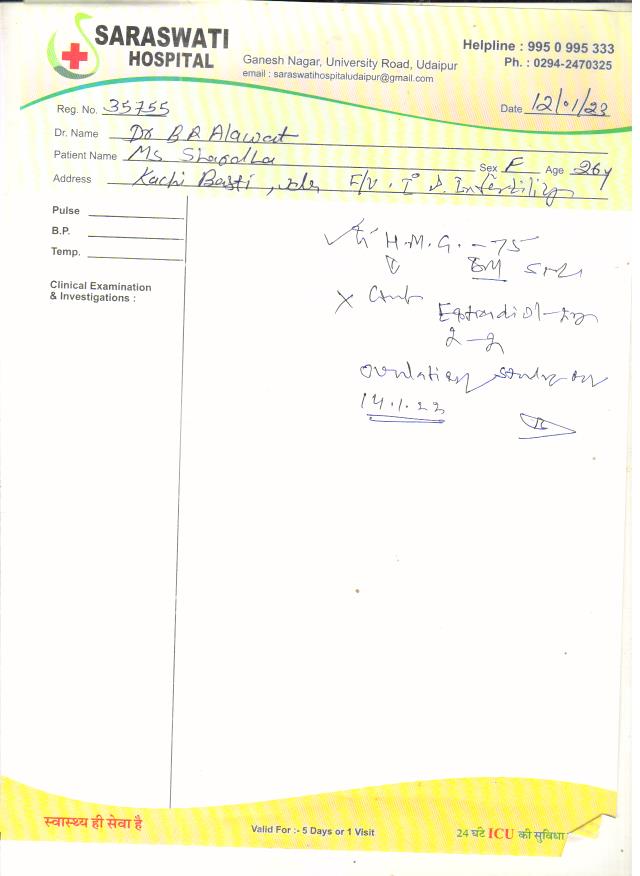 SARASWATI
HOSPITAL
Ganesh Nagar, University Road, Udaipur
email : saraswatihospitaludaipur@gmail.com
Helpline : 995 0 995 333
Ph. : 0294-2470325
Reg. No. 35755
Date 12/01/23
Dr. Name Dr B R Alawat
Patient Name Ms Sharddha
Sex F Age 26y
Address Kachi Basti, F/U . I° Infertility
Pulse
B.P.
Temp.
Clinical Examination
& Investigations :
H.M.G. - 75
Estradiol
2 - 2
ovulation study on
14.1.23
स्वास्थ्य ही सेवा है
Valid For :- 5 Days or 1 Visit
24 घंटे ICU की सुविधा